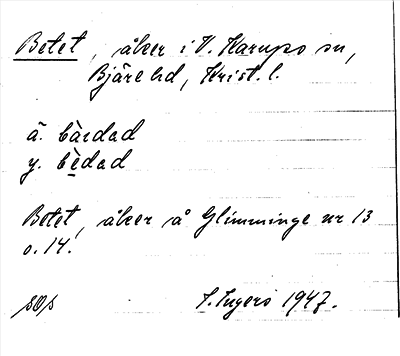 Betet, åker i V. Karups sn,
Bjäre hd, Krist. l.
ä. bàɪdad
y. bèdad
Betet, åker å Glimminge nr 13
o. 14.
S. Ingers 1947.